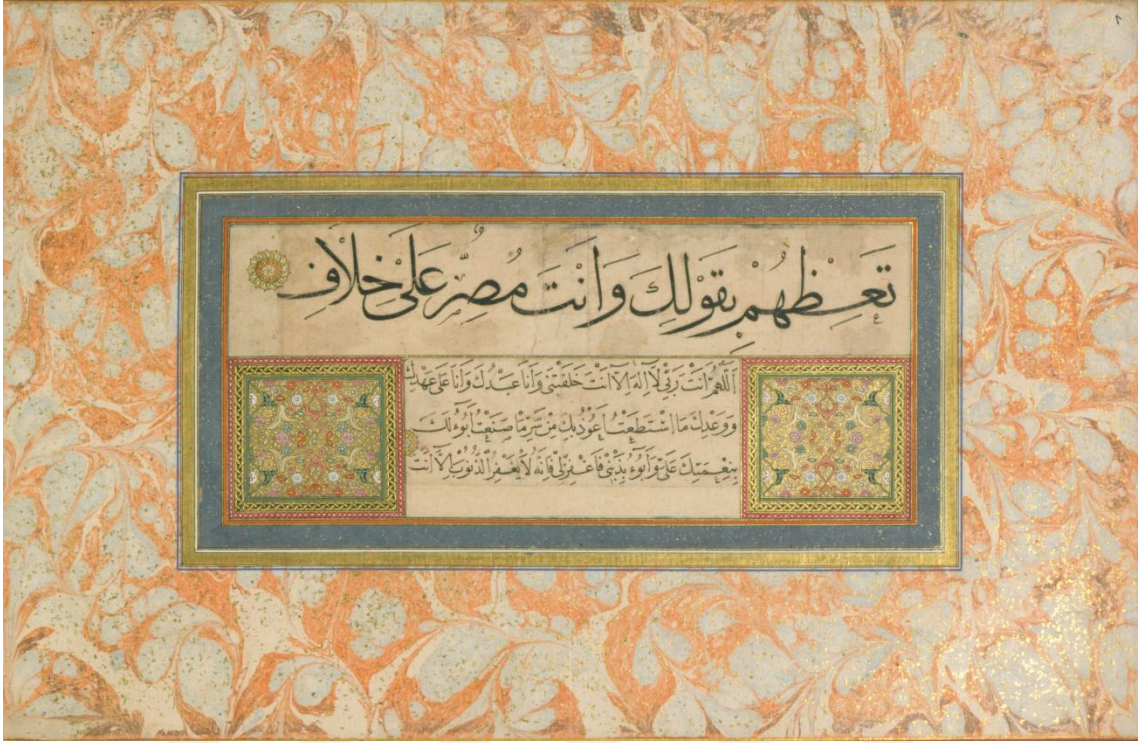 تَعِظُهُمْ بِقَوْلِكَ وَاَنْتَ مُصِرٌّ عَلَى خِلَافِ
اَللّٰهُمَّ اَنْتَ رَبِّى لَا اِلٰهَ اِلَّا اَنْتَ خَلَقْتَنِى وَاَنَا عَبْدُكَ وَاَنَا عَلٰى عَهْدِكَ
وَوَعْدِكَ مَا اسْتَطَعْتُ اَعُوذُ بِكَ مِنْ شَرِّ مَا صَنَعْتُ اَبُوءُ لَكَ
بِنِعْمَتِكَ عَلَىَّ وَاَبُوءُ بِذَنْبِى فَاغْفِرْلِى فَاِنَّهُ لَا يَغْفِرُ الذُّنُوبَ اِلَّا اَنْتَ